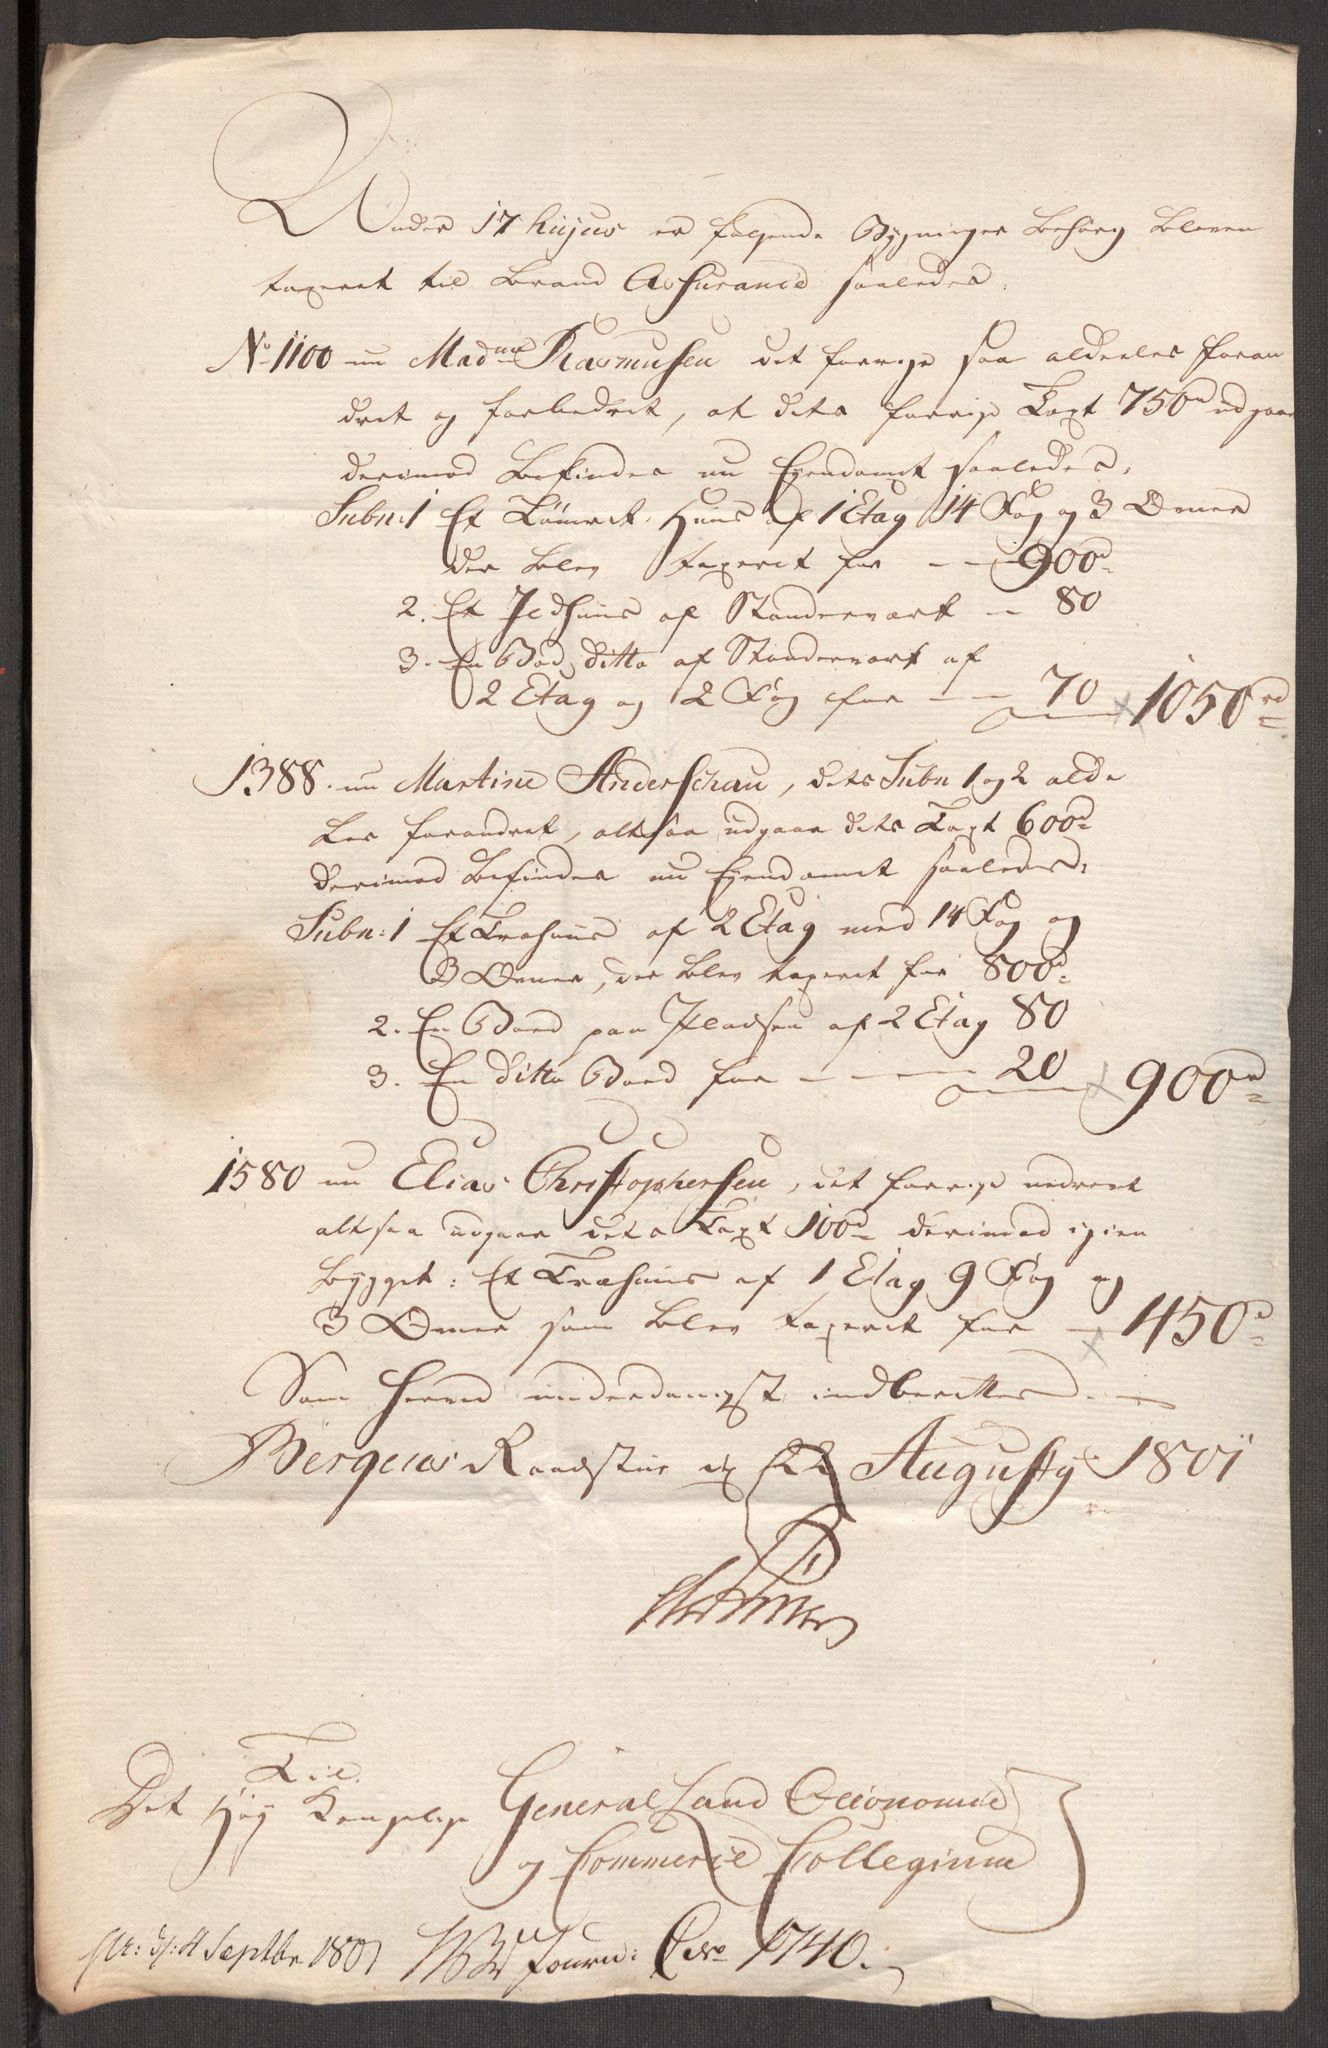 Under 17 hujus er følgende Bygninger behørig bleven
taxeret til Brand Assurance saaledes.
No 1100 nu Madme Rasmusen det forrige saa aldeeles foran
dret og forbedret, at dets forrige Taxt 750rd udgaar
derimod befindes nu Eyendomet saaledes,
Subn: 1 Et Tømret Huus af 1 Etag 14 Fag og 3 Ovner
der blev taxeret for - - 900rd
2. Et Ildhuus af Stænderværk - 80
3. En Bod ditto af Stænderværk af
2 Etag og 2 Fag for - - 70 1050rd
1388. nu Martine Anderschau, dets Subn 1 og 2 alde
les forandret, altsaa udgaar dets Taxt 600rd
derimod befindes nu Eyendomet saaledes:
Subn: 1 Et Træhuus af 2 Etag med 14 Fag og
3 Ovner, der blev taxeret for 800rd
2. En Boed paa Pladsen af 2 Etag 80
3. En ditto Boed for - - - - 20 900rd
1580 nu Elias Christophersen, det forrige nedrevet
altsaa udgaar dets Taxt 100rd derimod igien
bygget: Et Træhuus af 1 Etag 9 Fag og
3 Ovner som blev taxeret for - 450rd
Som herved underdanigst indberettes. -
Bergens Raadstue d 22 Augusty 1801
Til
Det Høy Kongelige General Land Oeconomie
og Commerce Collegium
pr: d: 4 Septbr 1801 Journ: No 1740.